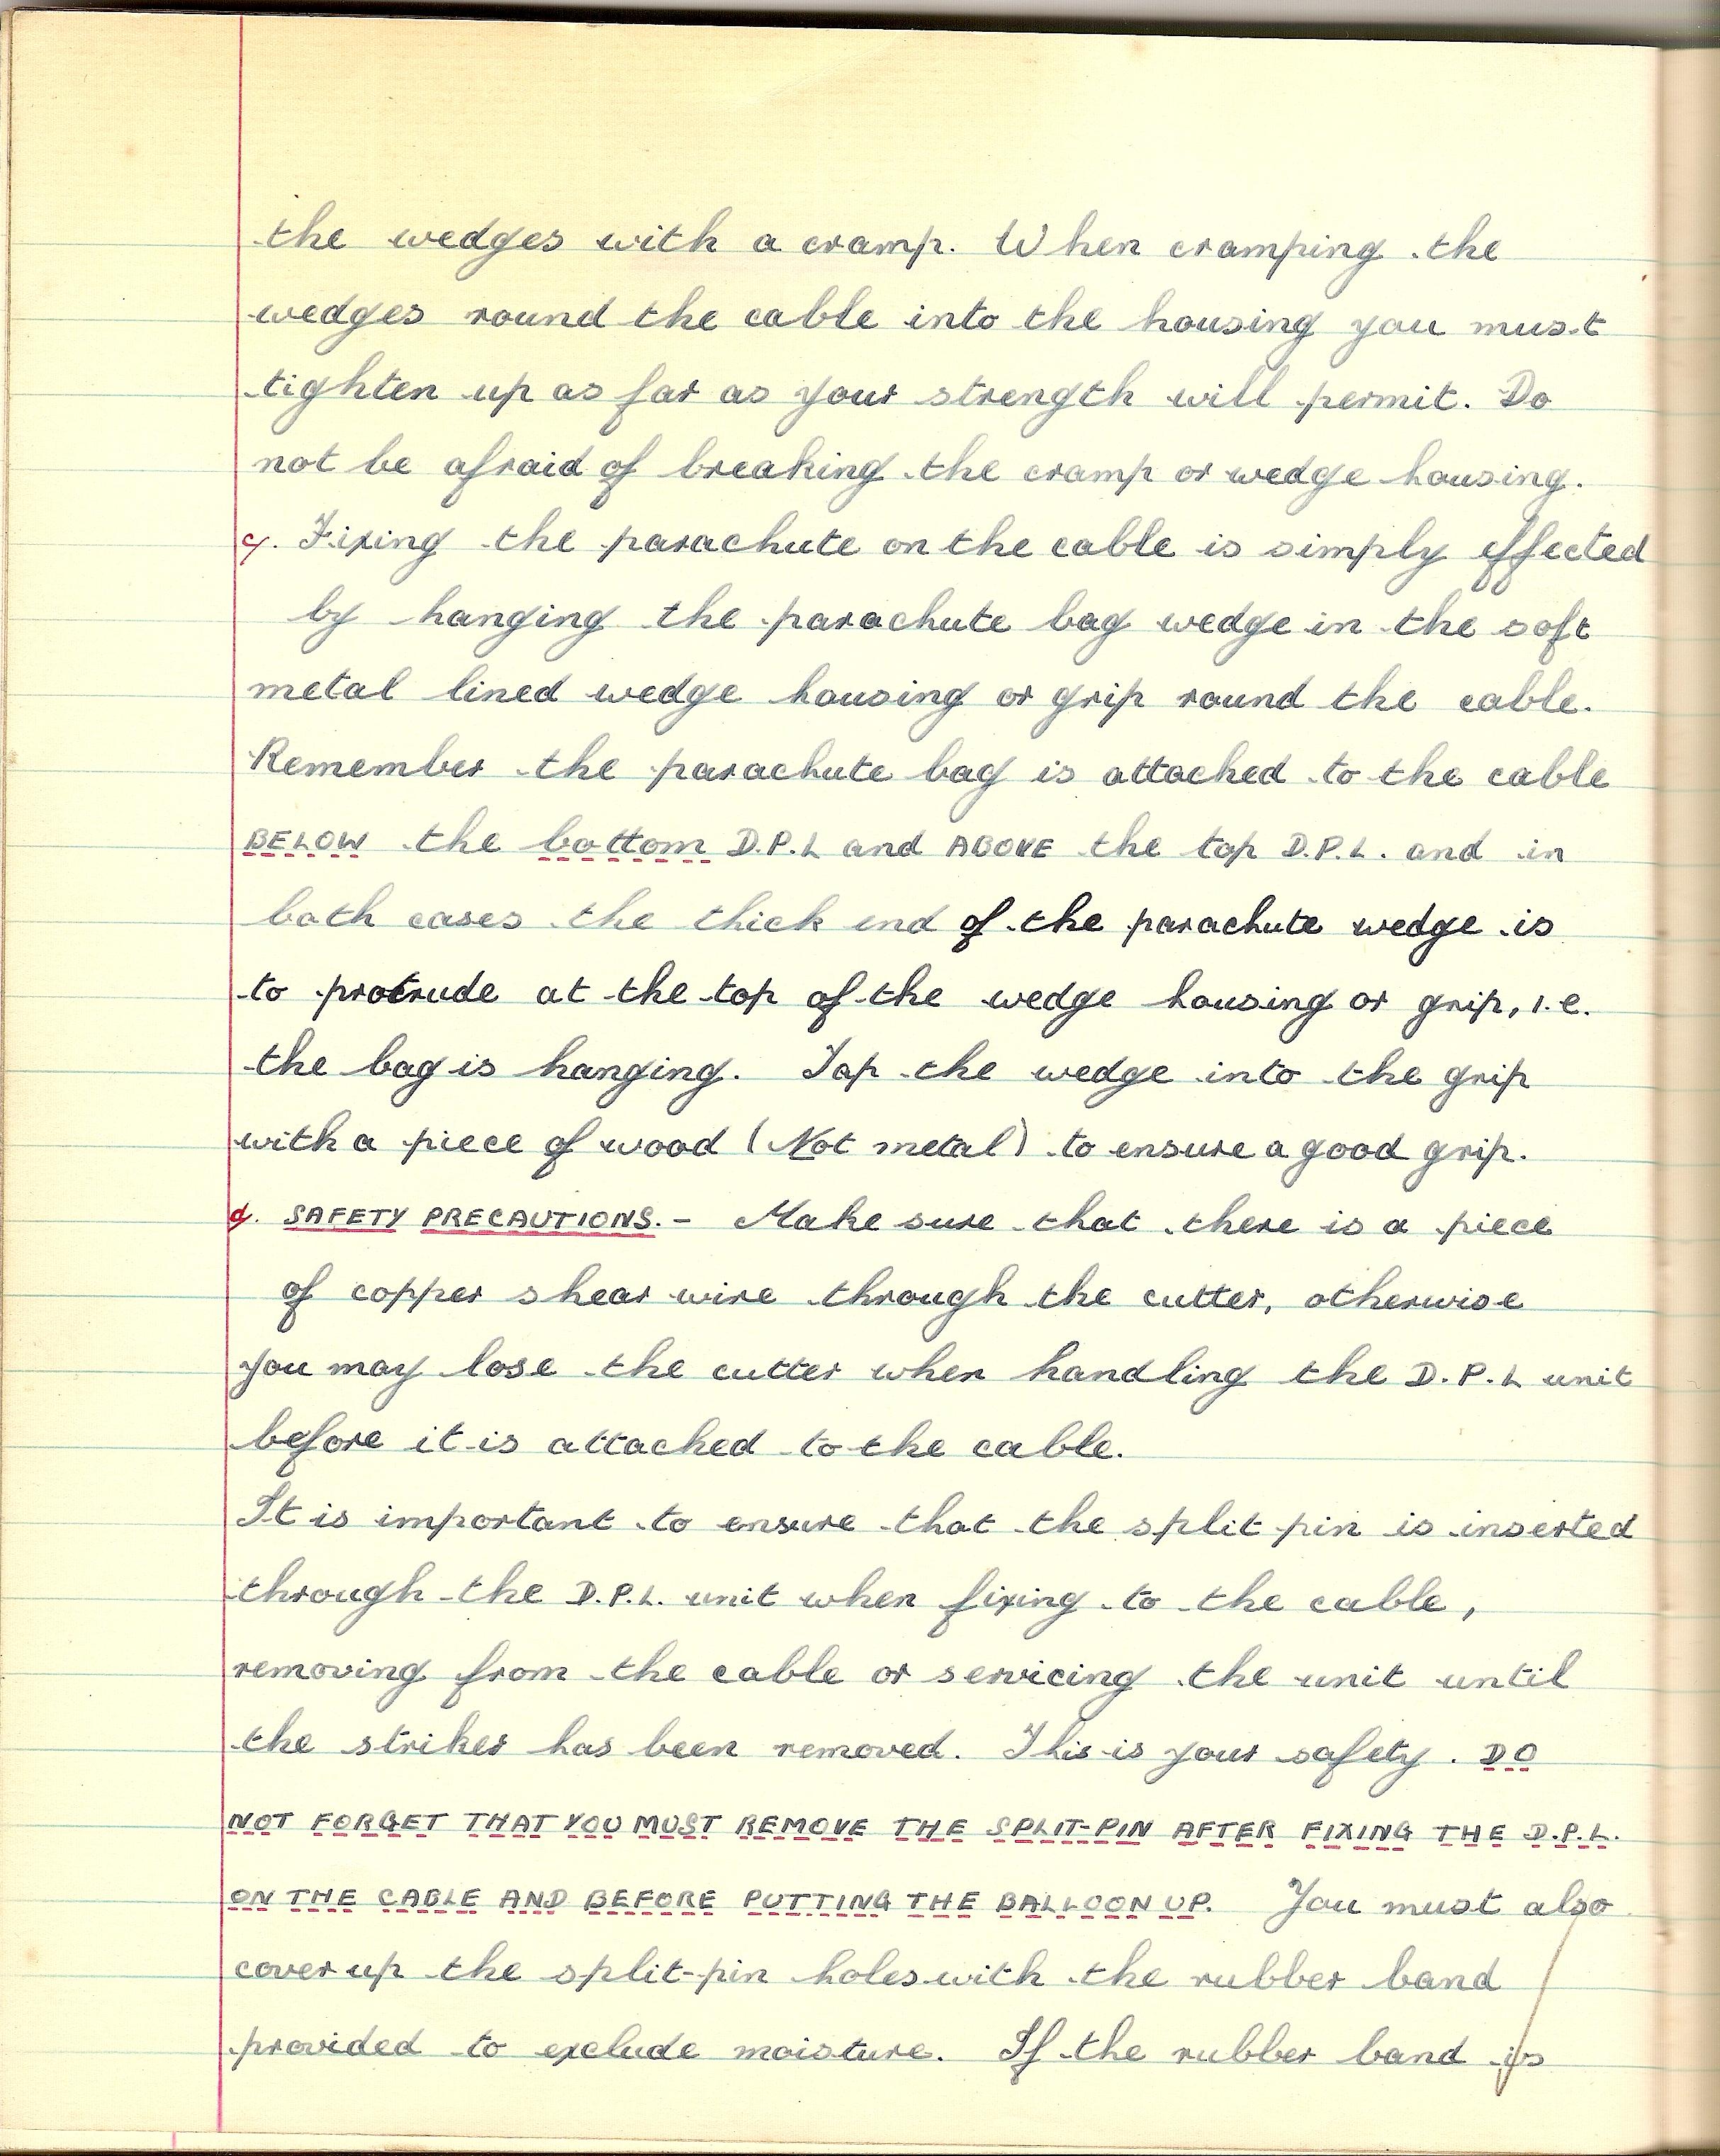 the wedges with a cramp. When cramping the
wedges round the cable into the housing you must
tighten up as far as your strength will permit. Do
not be afraid of breaking the cramp or wedge housing.
c. Fixing the parachute on the cable is simply effected
by hanging the parachute bag wedge in the soft
metal lined wedge housing or grip round the cable.
Remember the parachute bag is attached to the cable
BELOW the bottom D.P.L and ABOVE the top D.P.L. and in
both cases the thick end of the parachute wedge is
to protrude at the top of the wedge housing or grip, i.e.
the bag is hanging. Tap the wedge into the grip
with a piece of wood (Not metal) to ensure a good grip.
d. SAFETY PRECAUTIONS.- Make sure that there is a piece
of copper shear wire through the cutter, otherwise
you may lose the cutter when handling the D.P.L unit
before it is attached to the cable.
It is important to ensure that the split pin is inserted
through the D.P.L. unit when fixing to the cable,
removing from the cable or servicing the unit until
the striker has been removed. This is your safety. DO
NOT FORGET THAT YOU MUST REMOVE THE SPLIT-PIN AFTER FIXING THE D.P.L.
ON THE CABLE AND BEFORE PUTTING THE BALLOON UP. You must also
cover up the split-pin holes with the rubber band
provided to exclude moisture. If the rubber band is